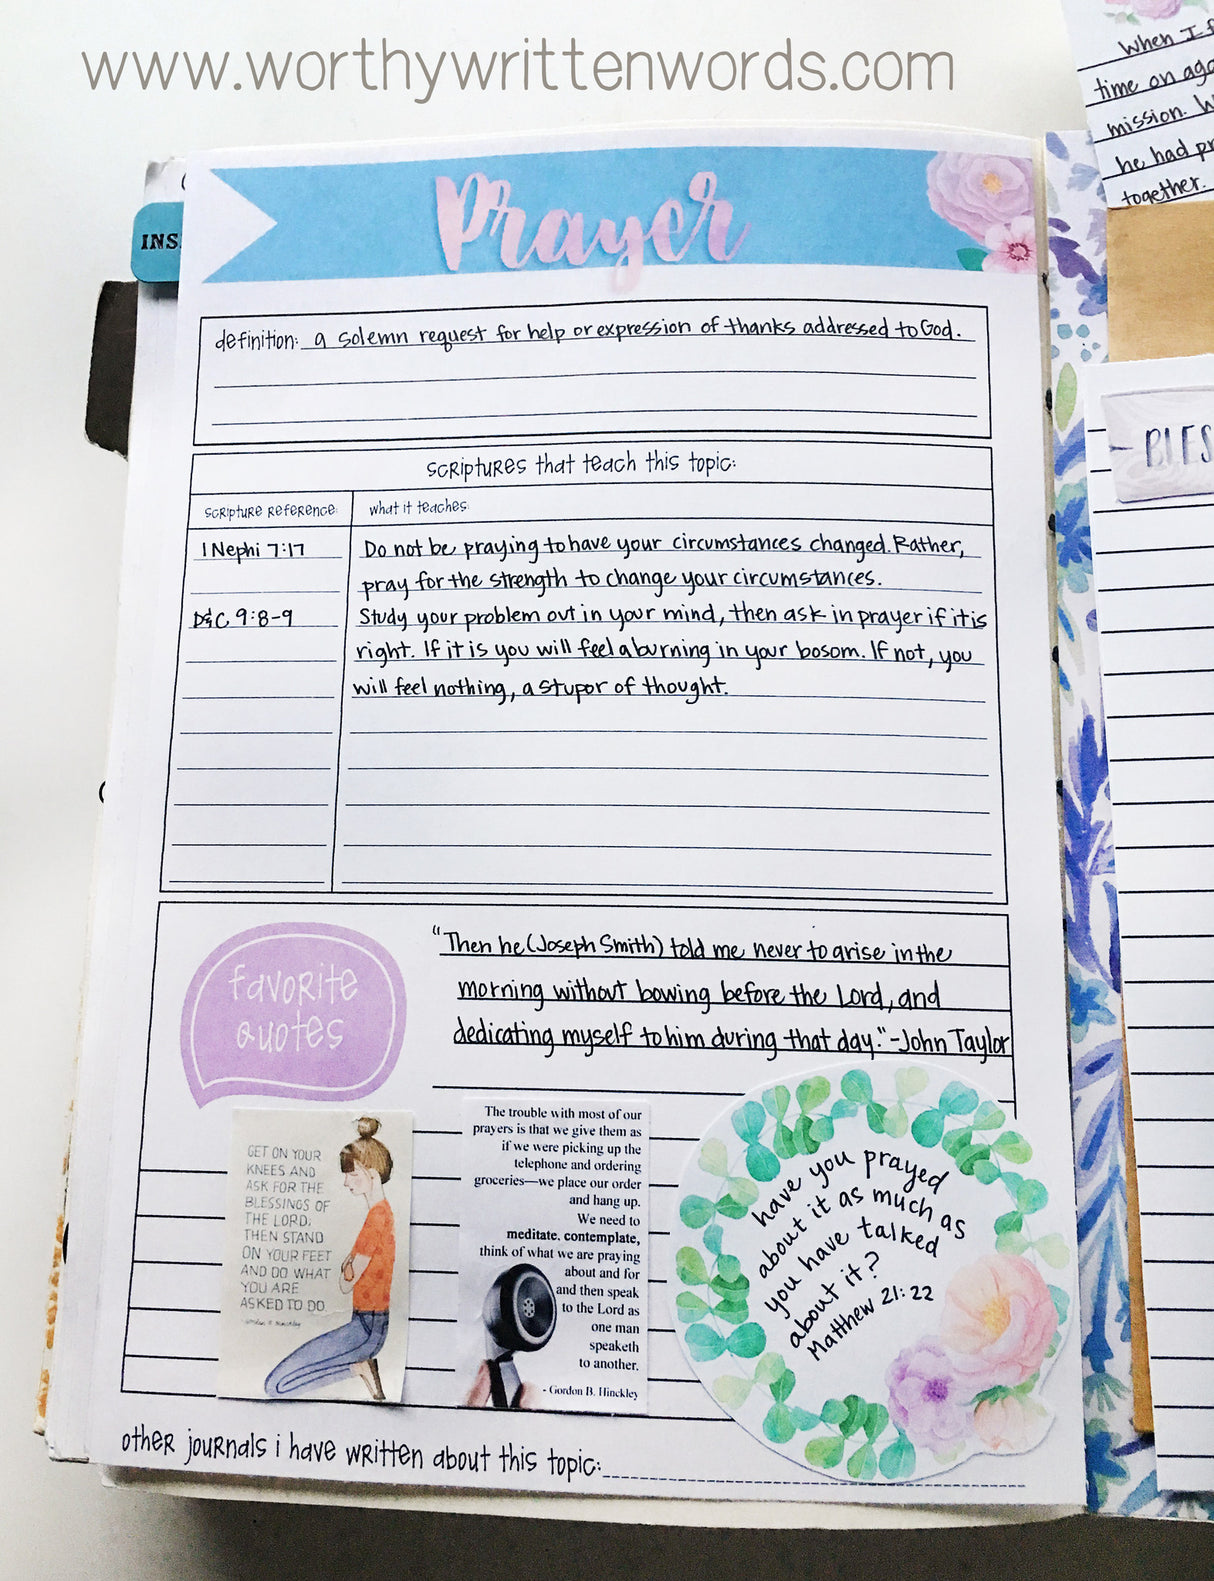 www.worthywrittenwords.com
When I f
time on aga
mission. W
he had pr
together.
INS
Prayer
definition: a solemn request for help or expression of thanks addressed to God.
BLES
scriptures that teach this topic:
scripture reference: what it teaches:
1 Nephi 7:17 Do not be praying to have your circumstances changed. Rather,
pray for the strength to change your circumstances.
D&C 9:8-9 Study your problem out in your mind, then ask in prayer if it is
right. If it is you will feel a burning in your bosom. If not, you
will feel nothing, a stupor of thought.
favorite
quotes
"Then he (Joseph Smith) told me never to arise in the
morning without bowing before the Lord, and
dedicating myself to him during that day." -John Taylor
GET ON YOUR
KNEES AND
ASK FOR THE
BLESSINGS OF
THE LORD;
THEN STAND
ON YOUR FEET
AND DO WHAT
YOU ARE
ASKED TO DO.
The trouble with most of our
prayers is that we give them as
if we were picking up the
telephone and ordering
groceries—we place our order
and hang up.
We need to
meditate. contemplate,
think of what we are praying
about and for
and then speak
to the Lord as
one man
speaketh
to another.
- Gordon B. Hinckley
have you prayed
about it as much as
you have talked
about it?
Matthew 21:22
other journals i have written about this topic: